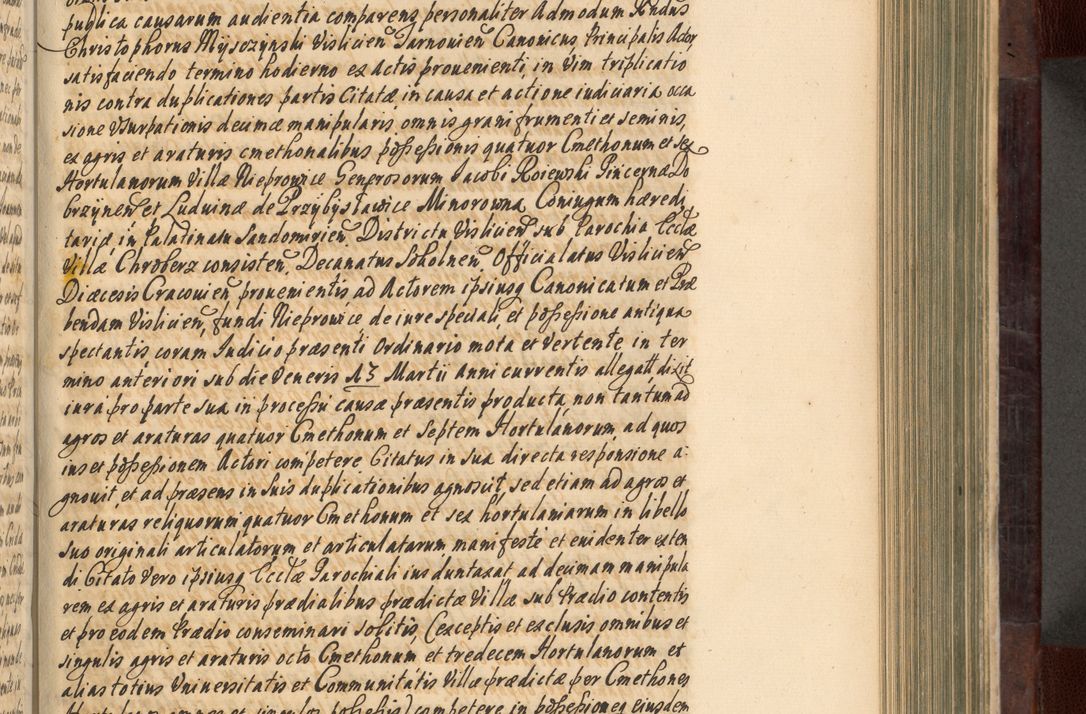 publica causarum audientia comparens personaliter Admodum Rndus
Christophorus Mysczynski Vislicien Tarnovien Canonicus, Principalis Actor,
satisfaciendo termino hodierno ex Actis provenienti, in Vim triplicatio
nis contra duplicationes partis Citatæ in causa et actione iudiciaria occa
sione Vsurpationis decimæ manipularis omnis grani frumenti et seminis,
ex agris et araturis cmethonalibus possessionis quatuor Cmethonum et sex
Hortulanorum Villæ Nieprowice Generosorum Jacobi Roiewski Pincernæ Do
brzynen et Luduinæ de Przybysławice Minorowna Coniugum hæredi
tariæ, in Palatinatu Sandomirien Districtu Vislicien sub Parochia Ecclæ
Villæ Chroberz consisten, Decanatus Sokolnen, Officialatus Vislicien
Diæcesis Cracouien, prouenientis ad Actorem ipsiusq Canonicatum et Præ
bendam Vislicien, fundi Nieprowice de iure speciali, et possessione antiqua
spectantis coram Iudicio præsenti Ordinario mota et Vertente in ter
mino anteriori sub die Veneris 13 Martii anni currentis allegatt dixit
iura pro parte sua in processu causæ præsentis producta, non tantum ad
agros et araturas quatuor Cmethonum et Septem Hortulanorum, ad quos
ius et possessionem Actori competere Citatus in sua directa responsione a:
gnouit, et ad præsens in suis duplicationibus agnoscit, sed etiam ad agros et
araturas reliquorum quatuor Cmethonum et sex hortulaniarum in libello
suo originali articulatorum et articulatarum manifeste et euidenter exten
di Citato Vero ipsiusq Ecclæ Parochiali ius duntaxat ad decimam manipula
rem ex agris et araturis prædialibus prædictæ Villæ sub Prædio contentis
et pro eodem Prædio conseminari solitis, (exceptis et exclusis omnibus et
singulis agris et araturis octo Cmethonum et tredecem Hortulanorum et
alias totius Vniuersitatis et Communitatis Villæ prædictæ per Cmethones
Hortulanos omnes et singulos possessis) competere in possessioneq eiusdem